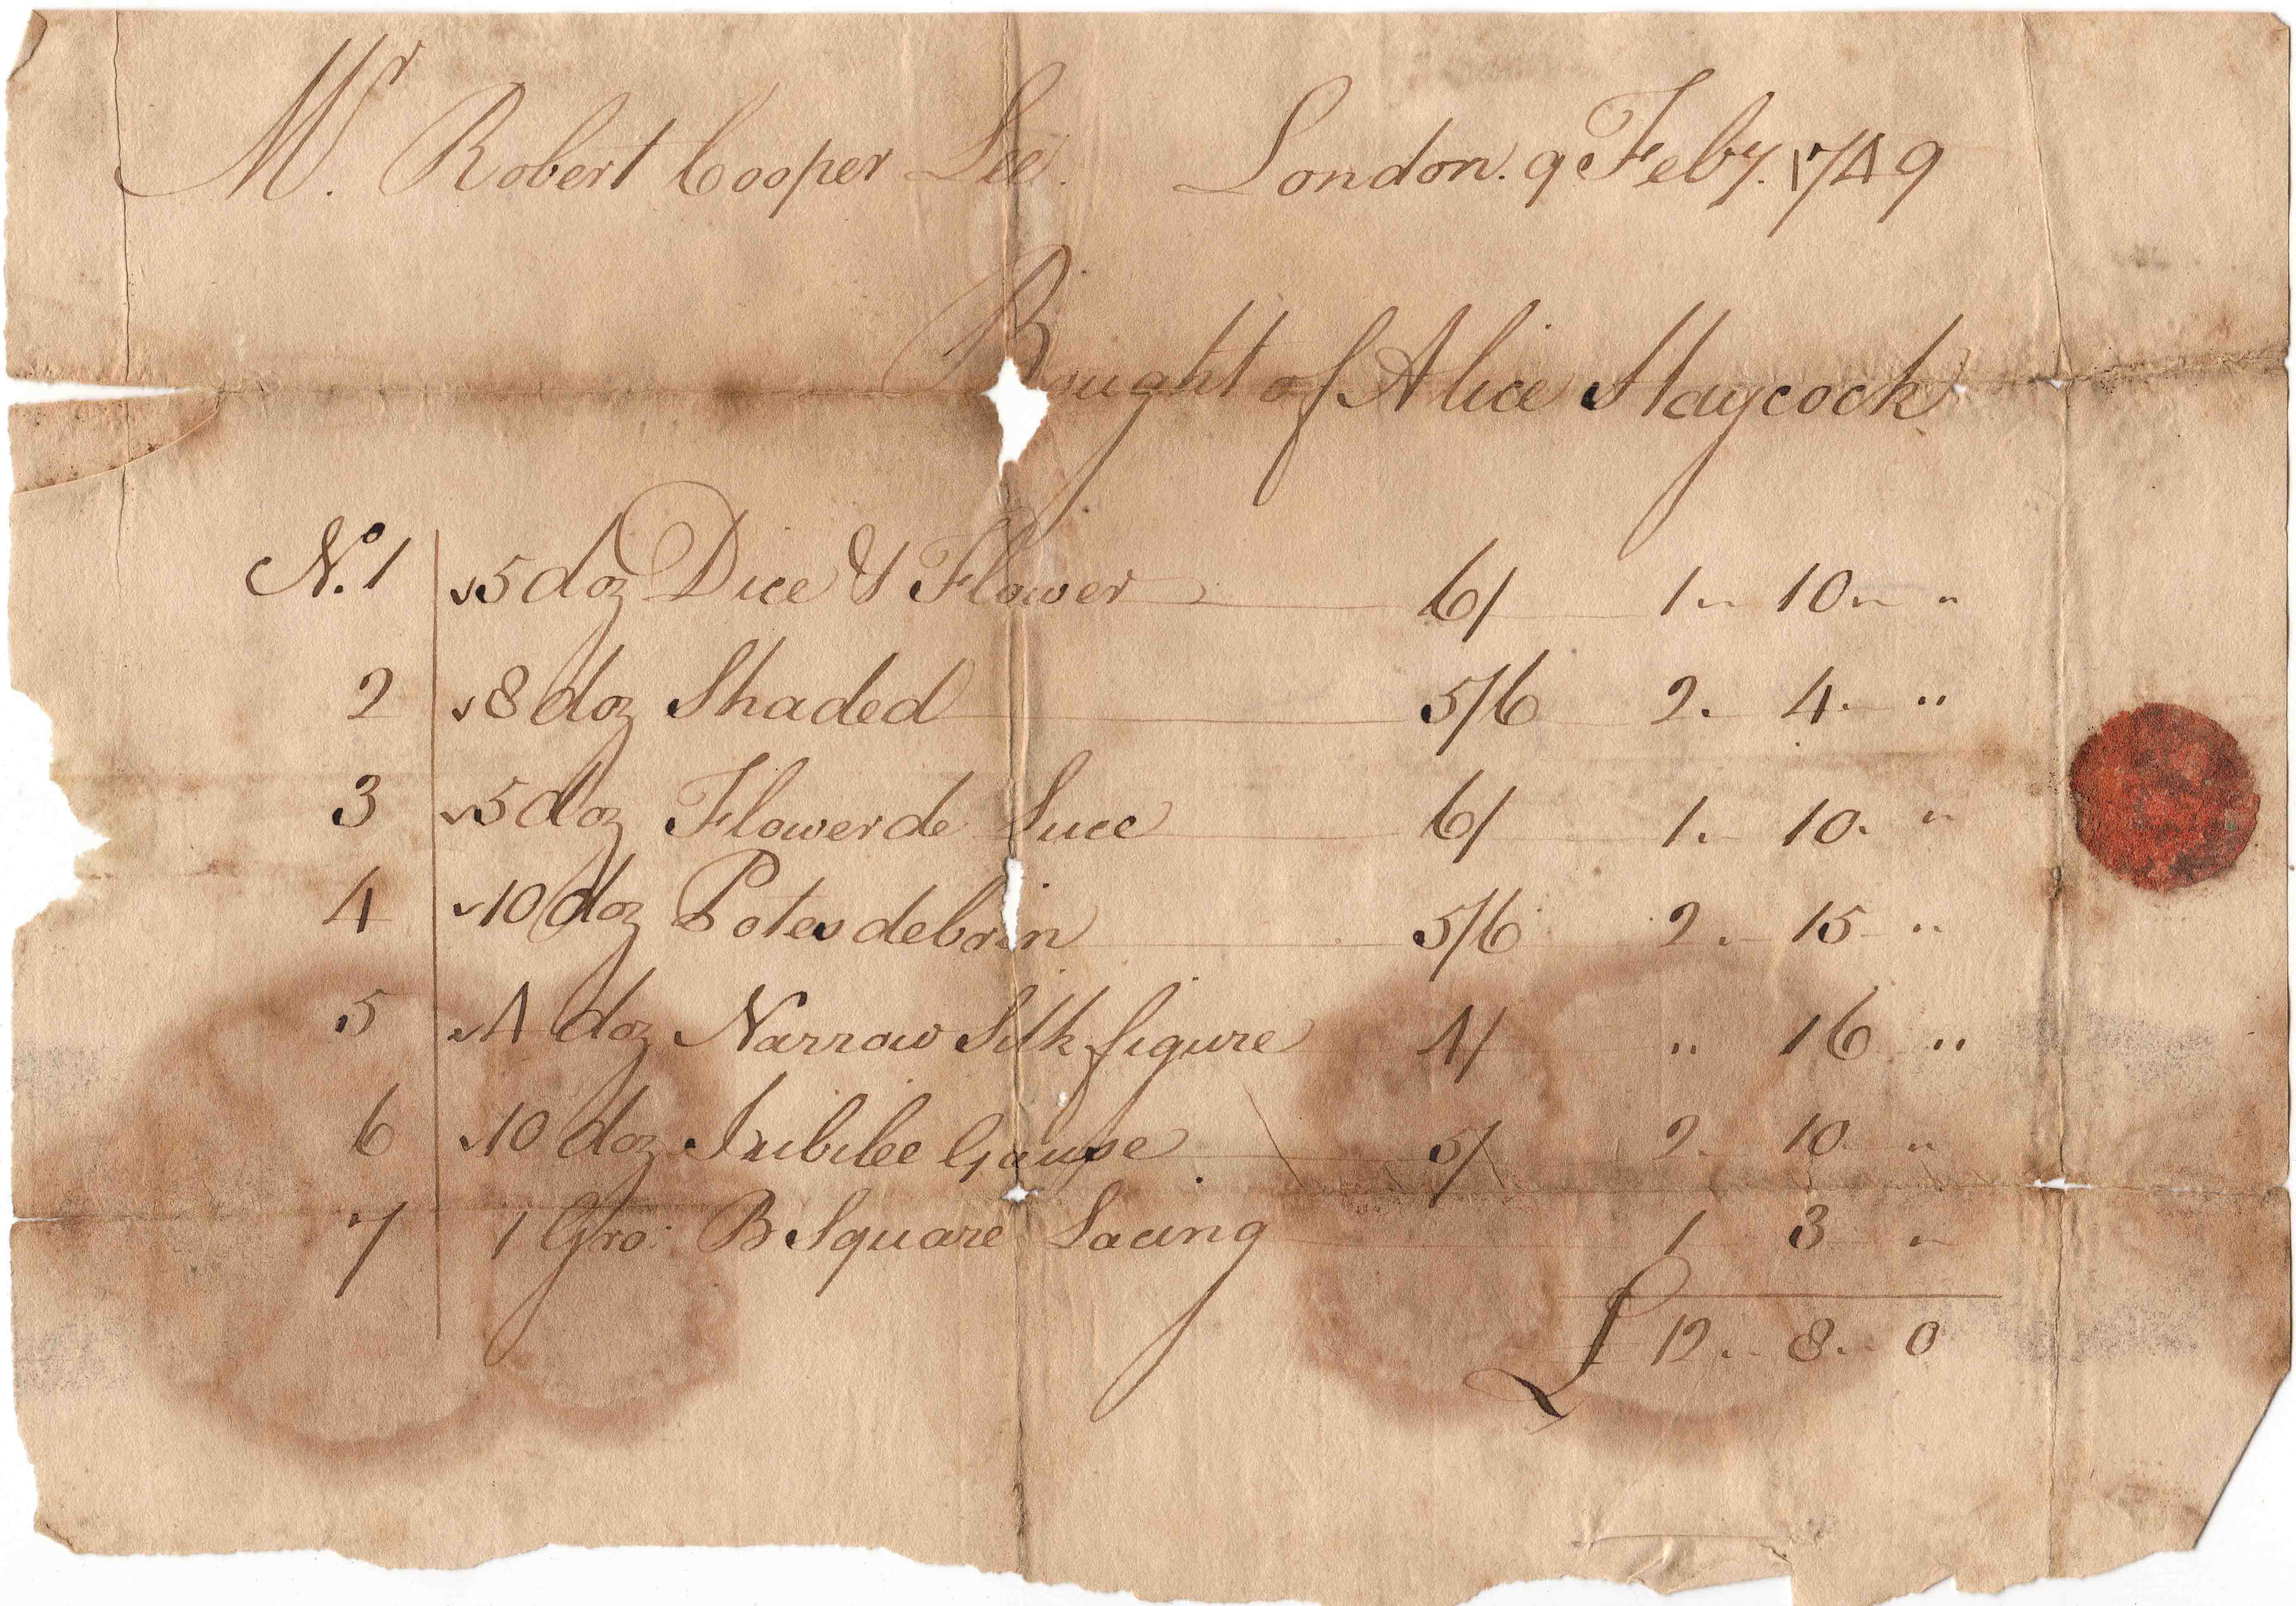 Mr. Robert Cooper Lee. London. 9 Feby. 1749
Bought of Alice Haycock
No. 1 5 doz Dice & Flower 6/ 1 " 10 " "
2 8 doz Shaded 5/6 2 . 4 . "
3 5 doz Flower de Luce 6/ 1 . 10 . "
4 10 doz Potes debrin 5/6 2 . 15 "
5 4 doz Narrow Silk figure 4/ " 16 "
6 10 doz Jubilee Gause 5/ 2 . 10 "
7 1 Gro: B Square Lacing 1 3 "
£ 12 .. 8 .. 0